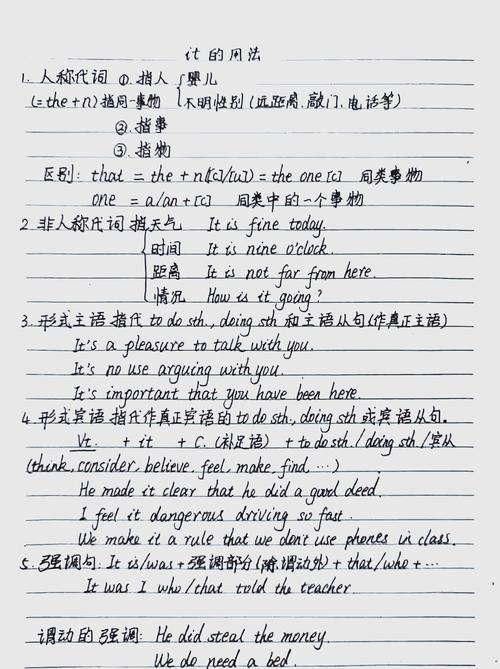 it 的用法
1. 人称代词 ①. 指人 { 婴儿
(= the + n) 指同一事物 { 不明性别 (远距离、敲门、电话等)
②. 指事
③. 指物
区别: that = the + n([c]/[u]) = the one [c] 同类事物
one = a/an + [c] 同类中的一个事物
2 非人称代词 指天气 It is fine today.
时间 It is nine o'clock.
距离 It is not far from here.
情况 How is it going?
3. 形式主语 指代 to do sth., doing sth 和主语从句(作真正主语)
It's a pleasure to talk with you.
It's no use arguing with you.
It's important that you have been here.
4. 形式宾语 指代作真正宾语的 to do sth., doing sth 或宾语从句。
Vt. + it + C. (补足语) + to do sth. / doing sth. / 宾从
(think, consider, believe, feel, make, find, …)
He made it clear that he did a good deed.
I feel it dangerous driving so fast.
We make it a rule that we don't use phones in class.
5. 强调句: It is/was + 强调部分(除谓动外) + that/who + …
It was I who/that told the teacher.
谓动的强调: He did steal the money.
We do need a bed.